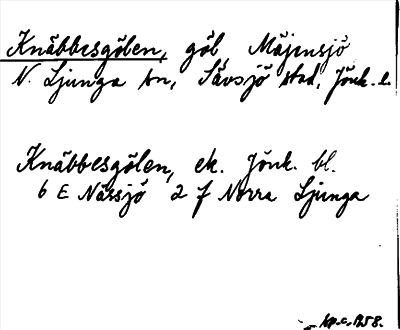 Knäbbesgölen, göl, Mäjensjö
N. Ljunga sn, Sävsjö stad, Jönk. l.
Knäbbesgölen, ek. Jönk. bl.
6 E Nässjö 2 f Norra Ljunga
1958.